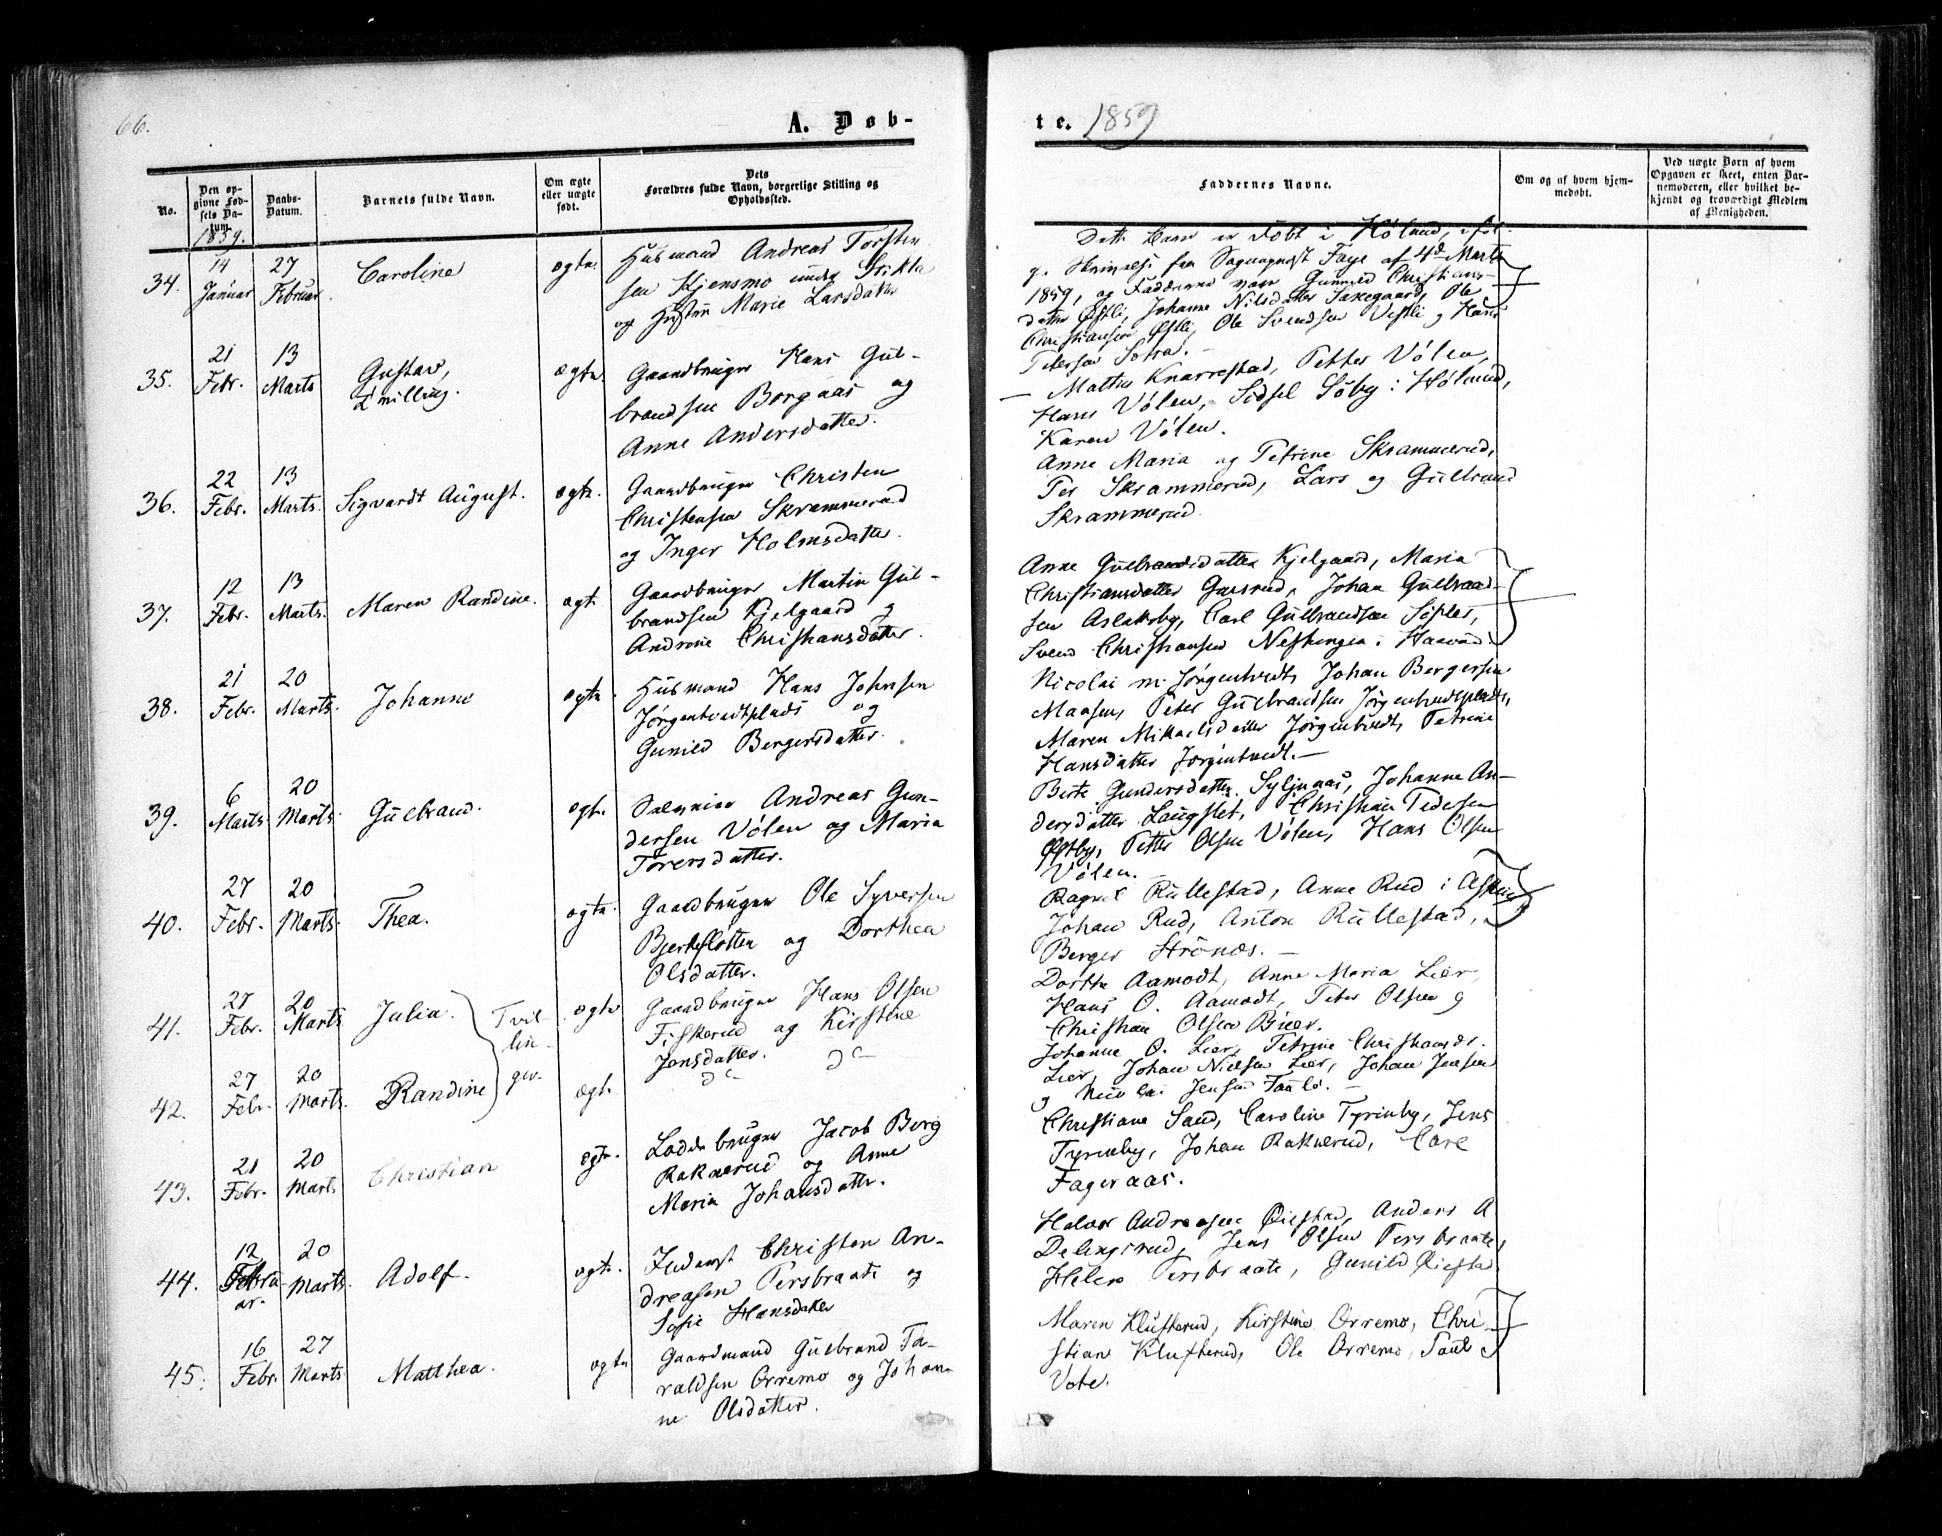 66.
A. Døb-
No.
Den op-
givne Fød-
sels Da-
tum.
1859.
Daabs-
Datum.
Barnets fulde Navn.
Om ægte
eller uægte
født.
Dets
Forældres fulde Navn, borgerlige Stilling og
Opholdssted.
34.
14
Januar
27
Februar.
Caroline
ægte.
Husmand Andreas Torsten
sen Kjensmo under
og Marie Larsdatter
35.
21
Febr.
13
Marts
Gustav,
Tvilling.
ægte.
Gaardbruger Hans Gul-
brandsen Borgaas og
Anne Andersdatter.
36.
22
Febr.
13
Marts.
Sigvardt August.
ægte.
Gaardbruger Christen
Christensen Skrammerud
og Inger Holmsdatter.
37.
12
Febr.
13
Marts.
Maren Randine.
ægte.
Gaardbruger Martin Gul-
brandsen Kjelgaard og
Andrine Christiansdatter.
38.
21
Febr.
20
Marts.
Johanne
ægte.
Husmand Hans Johnsen
Jørgentvedtplads og
Gunild Bergersdatter.
39.
6
Marts
20
Marts.
Gulbrand.
ægte.
Andreas Gun-
dersen Vølen og Maria
Torersdatter.
40.
27
Febr.
20
Marts.
Thea.
ægte.
Gaardbruger Ole Syversen
Bjerkeslotten og Dorthea
Olsdatter.
41.
27
Febr.
20
Marts
Julia.
Tvil-
lin-
ger.
ægte
Gaardbruger Hans Olsen
Fiskerud og Kirstine
Jensdatter.
42.
27
Febr.
20
Marts.
Randine
ægte.
do do
43.
21
Febr.
20
Marts
Christian
ægte.
Lodde bruger Jacob Berg
Raknerud og Anne
Maria Johansdatter.
44.
12
Februa-
ar.
20
Marts.
Adolf.
ægte.
Inderst Christen An-
dreasen Persbraate og
Sofie Hansdatter
45.
16
Febr.
27
Marts
Matthea.
ægte
Gaardmand Gulbrand Ta-
raldsen Orremo og Johan-
ne Olsdatter.
te. 1859
Faddernes Navne.
Om og af hvem hjem-
medøbt.
Ved uægte Børn af hvem
Opgaven er skeet, enten Bar-
nemoderen, eller hvilket be-
kjendt og troværdigt Medlem
af Menigheden.
Dette Barn er døbt i Høland, iføl-
g. Skrivelse fra Sognepræst Faye af 4de Marts
1859, og Fadderne vare Gunnild Christians-
datter Østli, Johanne Nilsdatter Sakegaard, Ole
Christiansen Østli, Ole Svendsen Vestli og Hans
Petersen Sotra. –
– Mathis Knarrestad, Petter Vølen,
Hans Vølen, Sidsel Søby i Høland,
Karen Vølen.
Anne Maria og Petrine Skrammerud,
Per Skrammerud, Lars og Gulbrand
Skrammerud.
Anne Gulbrandsdatter Kjelgaard, Maria
Christiansdatter Garsrud, Johan Gulbrand-
sen Aslaksby, Carl Gulbrandsen Søpler,
Svend Christiansen Nestungen i
Nicolai m. Jørgentvedt, Johan Bergersen
Maasen, Peter Gulbrandsen Jørgentvedtplads,
Maren Mikaelsdatter Jørgentvedt, Petrine
Hansdatter Jørgentvedt. –
Berte Gundersdatter Syljuaas, Johanne An-
dersdatter Laugslet, Christian Pedersen
Østby, Petter Olsen Vølen, Hans Olsen
Vølen.
Ragnil Rullestad, Anne Rud i Askim
Johan Rud, Anton Rullestad,
Berger Strønæs. –
Dorthe Aamodt, Anne Maria Lier,
Hans O. Aamodt, Peter Olsen og
Christian Olsen Buer.
Johanne O. Lier, Petrine Christiansdr.
Lier, Johan Nielsen Lier, Johan Jensen
og Nicolai Jensen –
Christiane Sand, Caroline Tyrinby, Jens
Tyrinby, Johan Raknerud, Carl
Fageraas.
Halvor Andreasen Øiestad, Anders A
Delingsrud, Jens Olsen Persbraate,
Helene Persbraate, Gunild Øiestad
Maren Klufterud, Kirstine Orremo, Chri-
stian Klufterud, Ole Orremo, Paul
Vote.